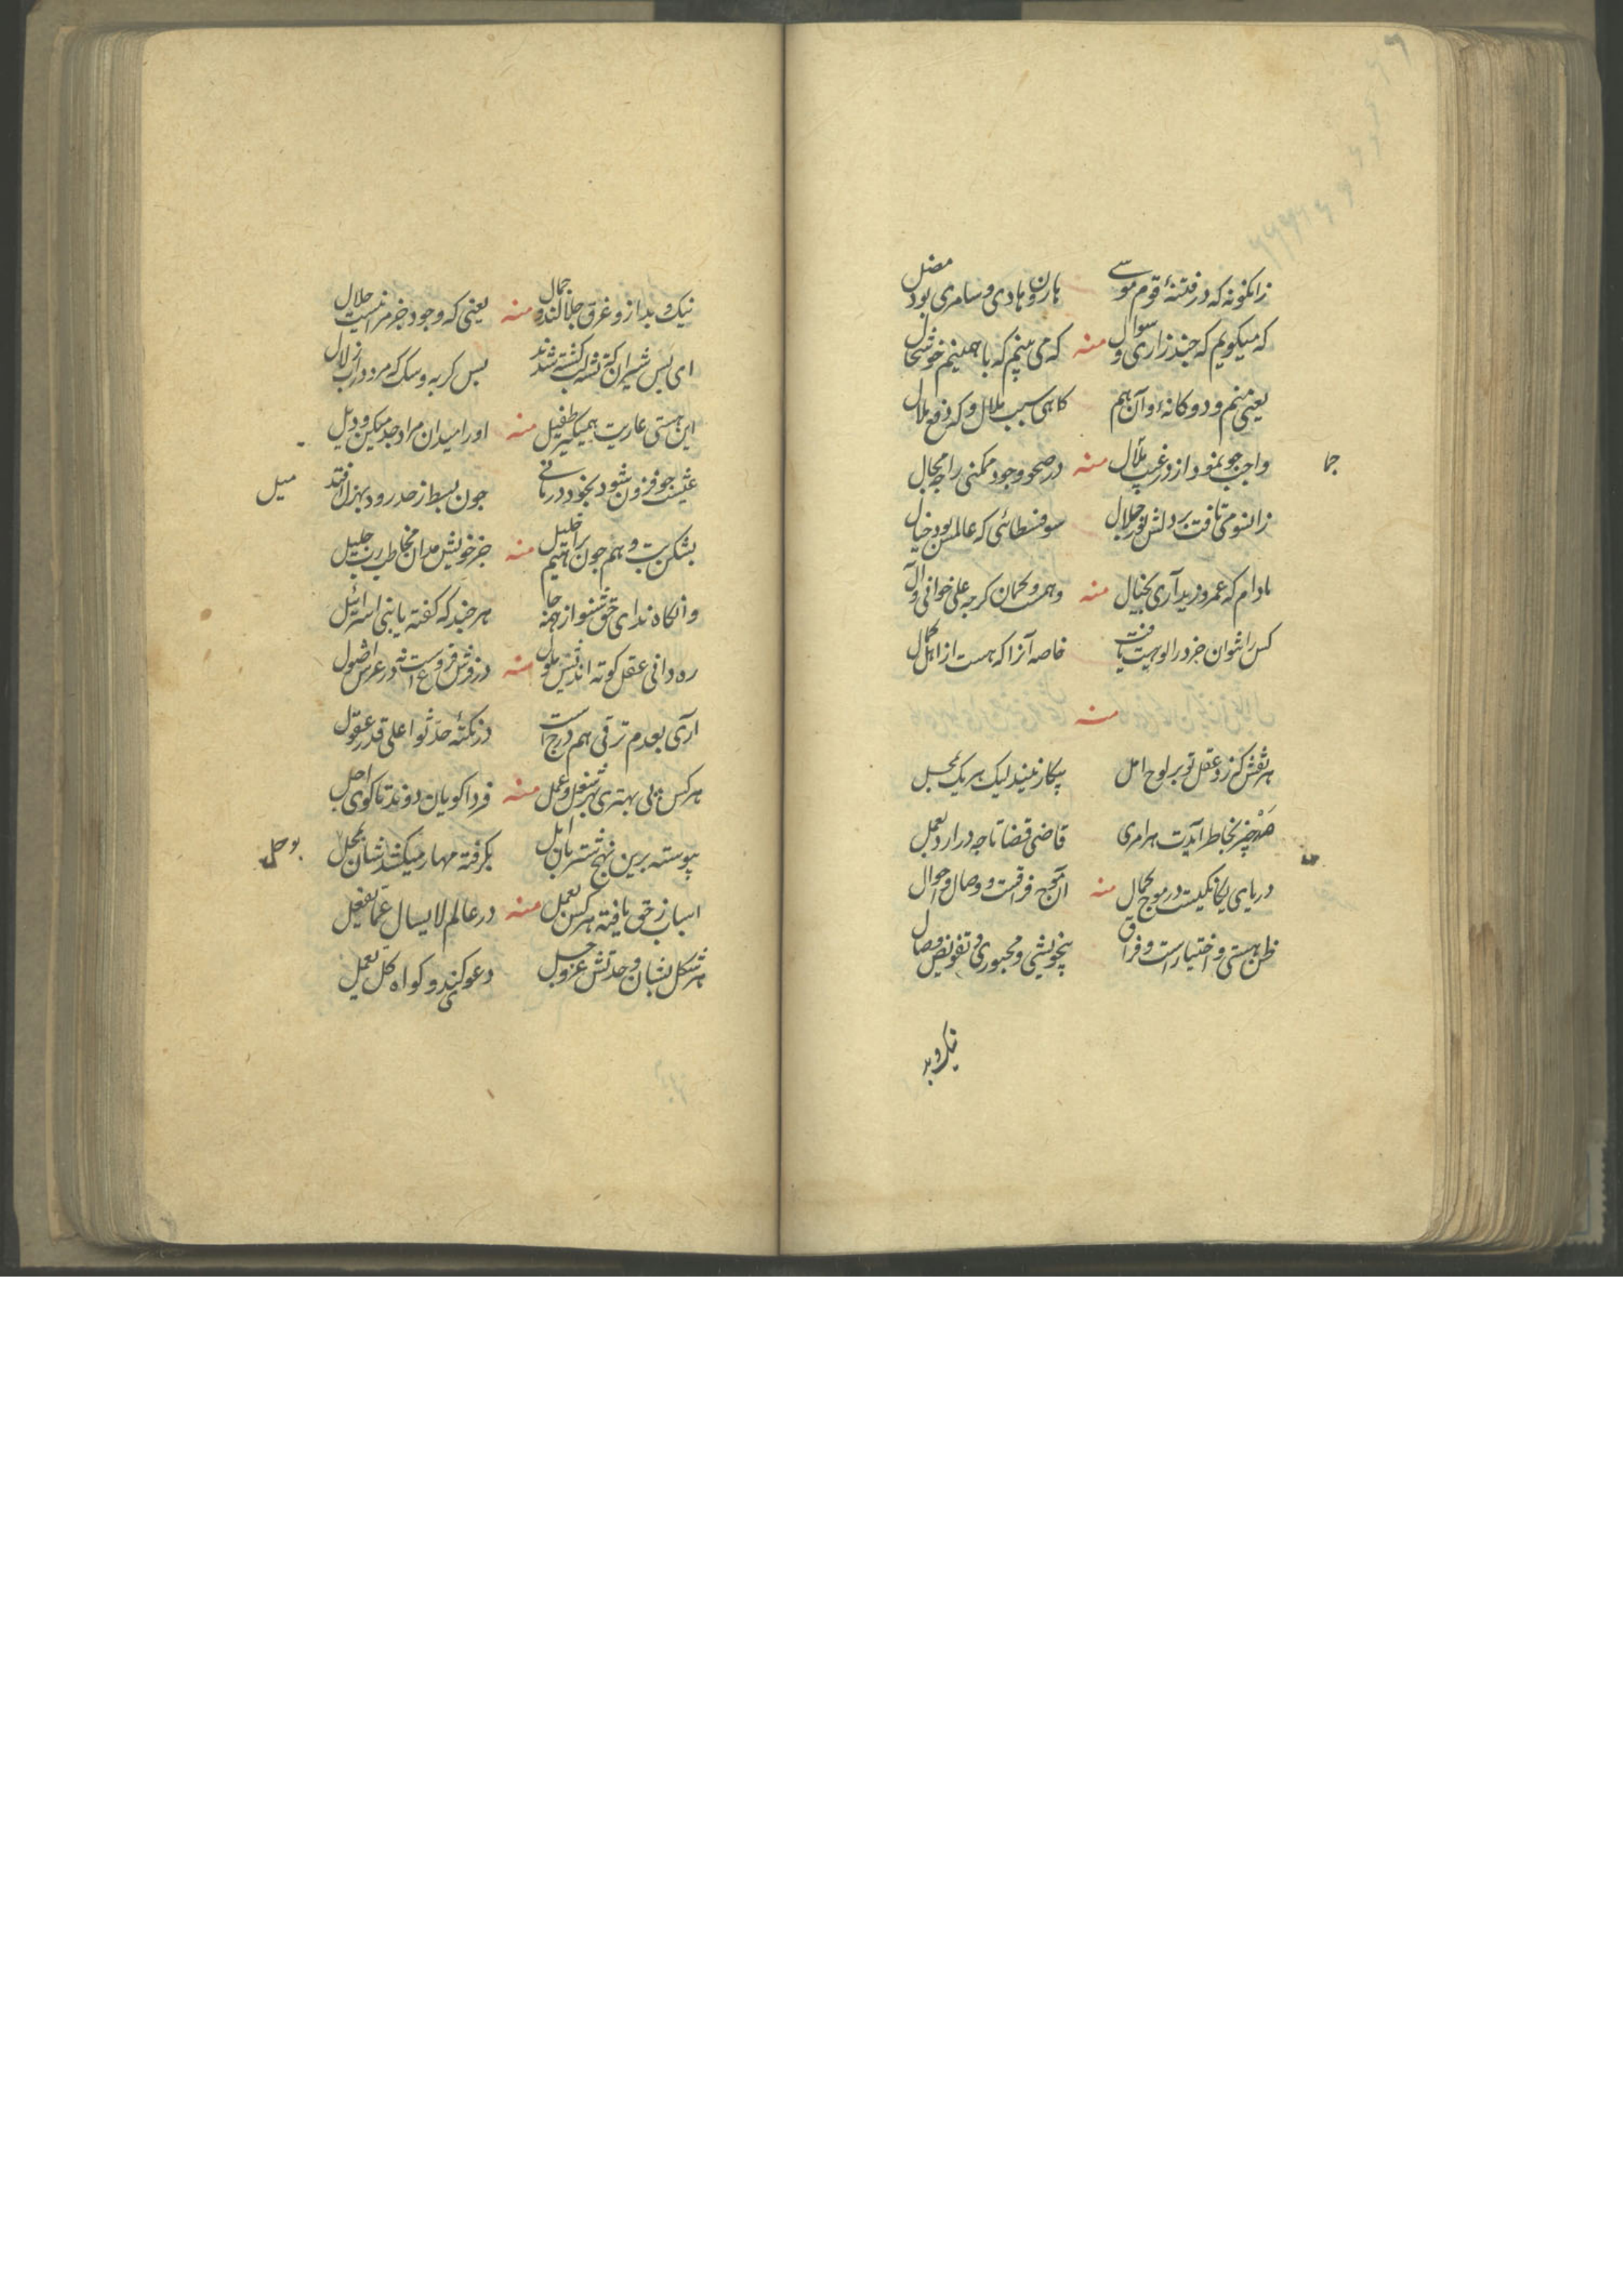 زانگونه که در فتنهٔ قوم موسے هارون هادی و سامری بود مضل
که میگویم که چند زاری و سوال منه که می بینم که با همینم خوشحال
یعنی منم و دوکانه و آن هم کاهی سبب ملال و که دفع ملال
جما
واجب جو نمود از در غیب منه در صحو وجود ممکنی را چه مجال
زانسو می تافت بر دلش نور جلال سوفسطائی که عالمش بود خیال
مادام که عمرو و زید آری بخیال منه وهمست و کمان کرچه علی خوانی و آل
کس را نتوان جز در الوهیت یافت خاصه آنرا که هست از اهل کمال
منه
هر نقش که زد عقل تو بر لوح امل بیکار نبیند لیک هر یک بمحل
صد چیز بخاطر آیدت هر امری قاضی قضا تا چه درارد بعمل
دریای یکانکیست در موج کمال منه آن موج فراقست و وصال و احوال
ظن هستی و اختیارست و فراق بیخویشی و مجبوری و تفویض وصال
نیک و بد
نیک و بد ازو غرق جلالند و جمال منه یعنی که وجود جز مرا نیست حلال
ای بس شیران که تشنه لب کشته شدند بس کربه و سک که مرد در آب زلال
این هستی عاریت همیکیر طفیل منه اورا میدان مراد جد میکن و ویل
عیشت جو فزون شود بخود در مانے جون بسط از حد رود بهزل افتد میل
بشکن بت وهم جون براهیم خلیل منه جز خویش مدان مخاطب رب جلیل
وانگاه ندای حق شنو از همه جا هر چند که کفته یا بنی اسرائیل
ره دانی عقل کوته اندیش ملول منه در فرش فروعست نه در عرش اصول
آری بعدم ترقی هم درج است در نکتهٔ حدثوا علی قدر عقول
هر کس پی بهتری بهر شغل و عمل منه فردا کویان دوند تا کوی اجل
پیوسته برین نهج شتربان امل بکرفته مهار میکشدشان بحیل
اسباب ز حق یافته هر کس بعمل منه در عالم لا یسال عما یفعل
هر شکل نشان وحدتش عز و جل دعوی کند و کواه کل یعمل